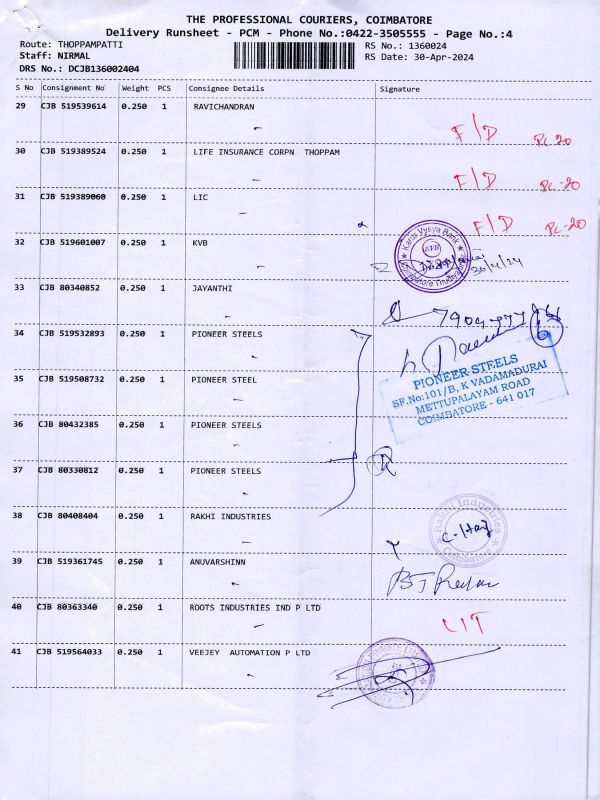 THE PROFESSIONAL COURIERS, COIMBATORE
Delivery Runsheet - PCM - Phone No.:0422-3505555 - Page No.:4
Route: THOPPAMPATTI RS No.: 1360024
Staff: NIRMAL RS Date: 30-Apr-2024
DRS No.: DCJB136002404
S No Consignment No Weight PCS Consignee Details Signature
29 CJB 519539614 0.250 1 RAVICHANDRAN
F/D
30 CJB 519389524 0.250 1 LIFE INSURANCE CORPN THOPPAM
F/D
31 CJB 519389060 0.250 1 LIC
F/D
32 CJB 519601007 0.250 1 KVB
Karur Vysya Bank
KVB
30/4/24
33 CJB 80340852 0.250 1 JAYANTHI
34 CJB 519532893 0.250 1 PIONEER STEELS
PIONEER STEELS
SF.No:101/B, K VADAMADURAI
METTUPALAYAM ROAD
COIMBATORE - 641 017
35 CJB 519508732 0.250 1 PIONEER STEEL
36 CJB 80432385 0.250 1 PIONEER STEELS
37 CJB 80330812 0.250 1 PIONEER STEELS
38 CJB 80408404 0.250 1 RAKHI INDUSTRIES
Rakhi Industries
Coimbatore
39 CJB 519361745 0.250 1 ANUVARSHINN
40 CJB 80363340 0.250 1 ROOTS INDUSTRIES IND P LTD
41 CJB 519564033 0.250 1 VEEJEY AUTOMATION P LTD